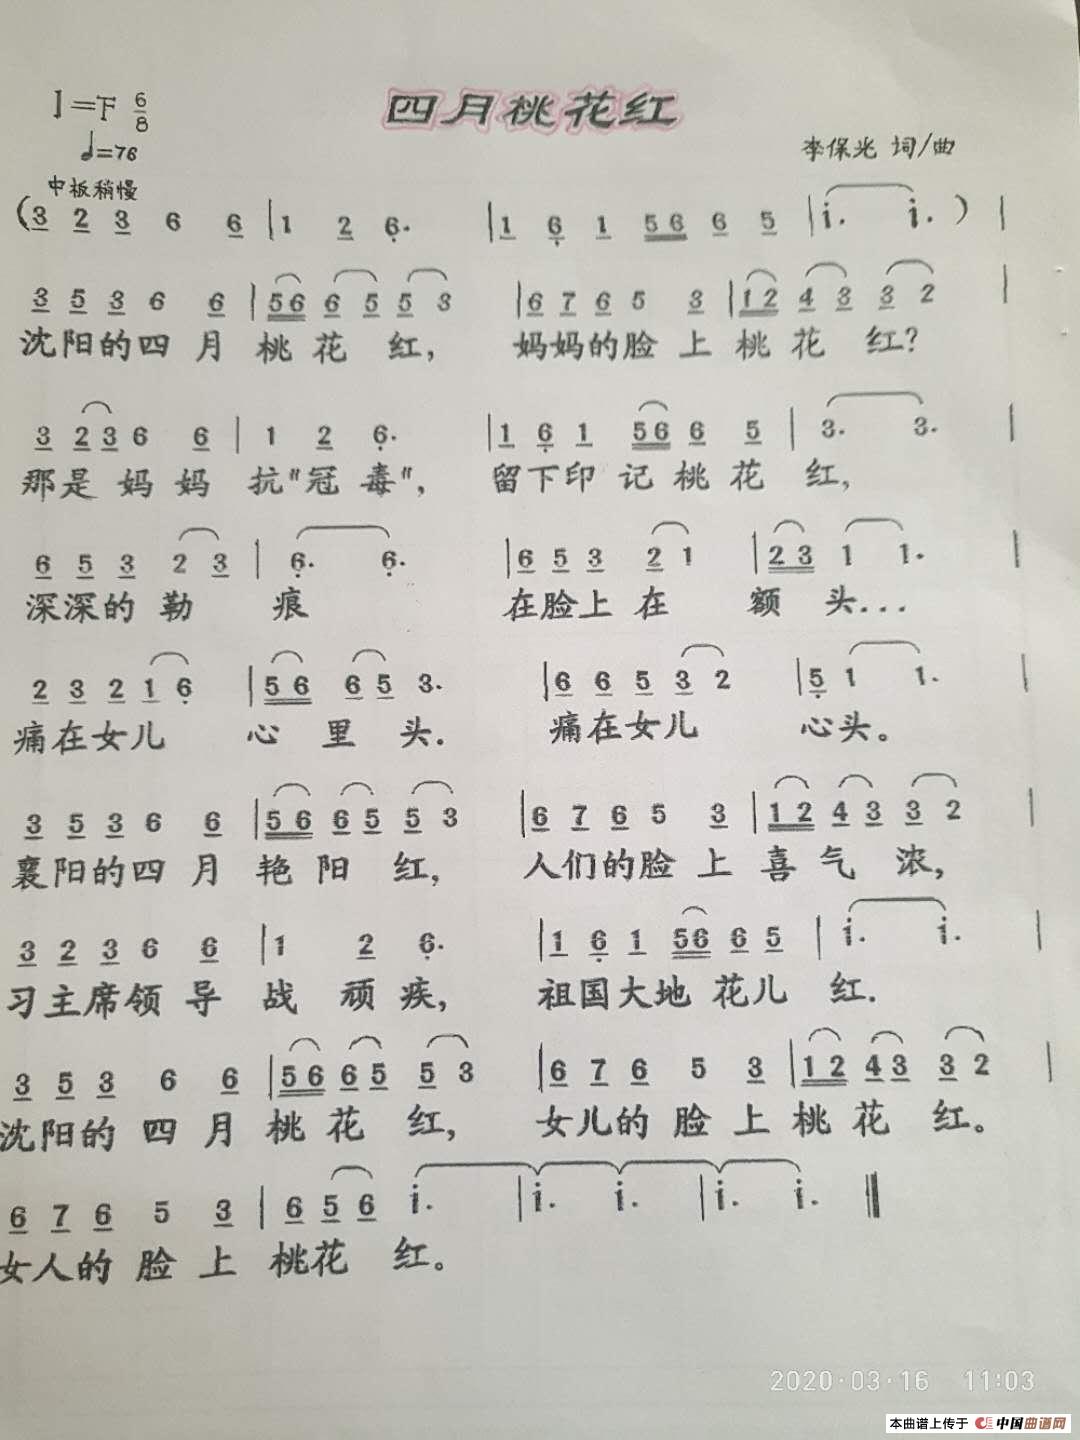 四月桃花红
1=F 6/8
♩=76
李保光 词/曲
中板稍慢
(3 2 3 6 6 | 1 2 6. | 1 6 1 56 6 5 | i. i. ) |
3 5 3 6 6 | 56 6 5 5 3 | 6 7 6 5 3 | 12 4 3 3 2 |
沈阳的四月 桃花 红, 妈妈的脸上 桃花 红?
3 23 6 6 | 1 2 6. | 1 6 1 56 6 5 | 3. 3. |
那是妈妈 抗"冠毒", 留下印记桃花 红,
6 5 3 2 3 | 6. 6. | 6 5 3 2 1 | 23 1 1. |
深深的勒 痕 在脸上在 额 头...
2 3 2 1 6 | 56 65 3. | 6 6 5 3 2 | 5 1 1. |
痛在女儿 心里头. 痛在女儿 心头。
3 5 3 6 6 | 56 65 5 3 | 6 7 6 5 3 | 12 43 3 2 |
襄阳的四月 艳阳 红, 人们的脸上 喜气 浓,
3 2 3 6 6 | 1 2 6. | 1 6 1 56 6 5 | i. i. |
习主席领导 战 顽疾, 祖国大地花儿 红.
3 5 3 6 6 | 56 65 5 3 | 6 7 6 5 3 | 12 43 3 2 |
沈阳的四月 桃花 红, 女儿的脸上 桃花 红。
6 7 6 5 3 | 6 5 6 i. | i. i. | i. i. ‖
女人的脸上 桃花 红。
2020·03·16 11:03
本曲谱上传于 中国曲谱网